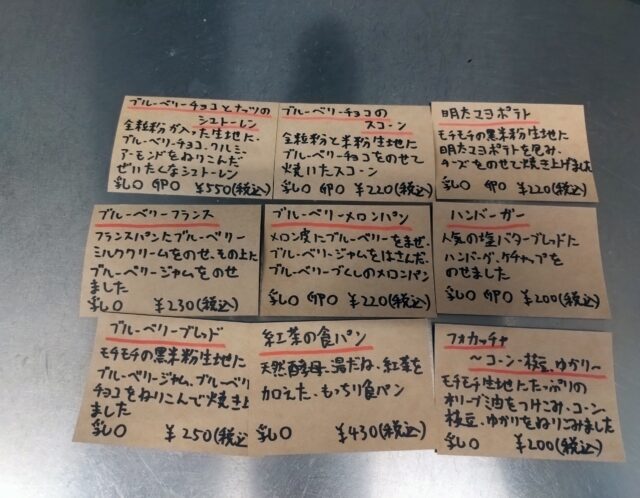 ブルーベリーチョコとナッツの
シュトーレン
全粒粉が入った生地に、
ブルーベリーチョコ、クルミ、
アーモンドをねりこんだ
ぜいたくなシュトーレン
乳○ 卵○ ¥550(税込)
ブルーベリーチョコの
スコーン
全粒粉と米粉生地に
ブルーベリーチョコをのせて
焼いたスコーン
乳○ 卵○ ¥220(税込)
明太マヨポテト
モチモチの黒米粉生地に
明太マヨポテトを包み、
チーズをのせて焼き上げました
乳○ 卵○ ¥220(税込)
ブルーベリーフランス
フランスパンにブルーベリー
ミルククリームをのせ、その上に
ブルーベリージャムをのせ
ました
乳○ ¥230(税込)
ブルーベリーメロンパン
メロン皮にブルーベリーをまぜ、
ブルーベリージャムをはさんだ、
ブルーベリーづくしのメロンパン
乳○ 卵○ ¥220(税込)
ハンバーガー
人気の塩バターブレッドに
ハンバーグ、ケチャップを
のせました
乳○ 卵○ ¥200(税込)
ブルーベリーブレッド
モチモチの黒米粉生地に
ブルーベリージャム、ブルーベリ
チョコをねりこんで焼き上
ました
乳○ ¥250(税込
紅茶の食パン
天然酵母に湯だね、紅茶を
加えた、もっちり食パン
乳○ ¥430(税込)
フォカッチャ
〜コーン・枝豆、ゆかり〜
モチモチ生地にたっぷりの
オリーブ油をつけこみ、コーン、
枝豆、ゆかりをねりこみました
乳○ ¥200(税込)